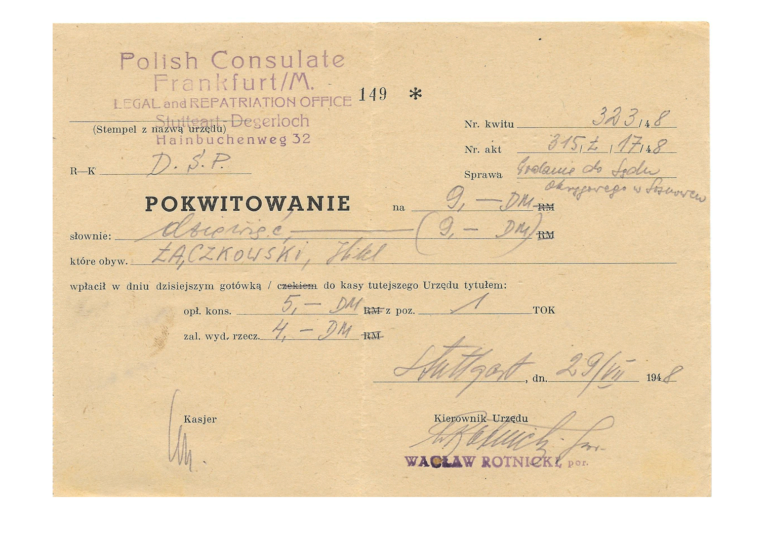 Polish Consulate
Frankfurt/M.
LEGAL and REPATRIATION OFFICE
149 *
Stuttgart-Degerloch
(Stempel z nazwą urzędu)
Hainbuchenweg 32
Nr. kwitu 323/48
Nr. akt 315, Ł, 17, 48
R—K D. S. P.
Sprawa Podanie do Sądu
Okręgowego w Sosnowcu
POKWITOWANIE na 9,— DM RM
słownie: dziewięć (9,— DM) RM
które obyw. ŁĄCZKOWSKI,
wpłacił w dniu dzisiejszym gotówką / czekiem do kasy tutejszego Urzędu tytułem:
opł. kons. 5,— DM RM z poz. 1 TOK
zal. wyd. rzecz. 4,— DM RM
Stuttgart, dn. 29/VII 1948
Kasjer
Kierownik Urzędu
WACŁAW ROTNICKI, por.